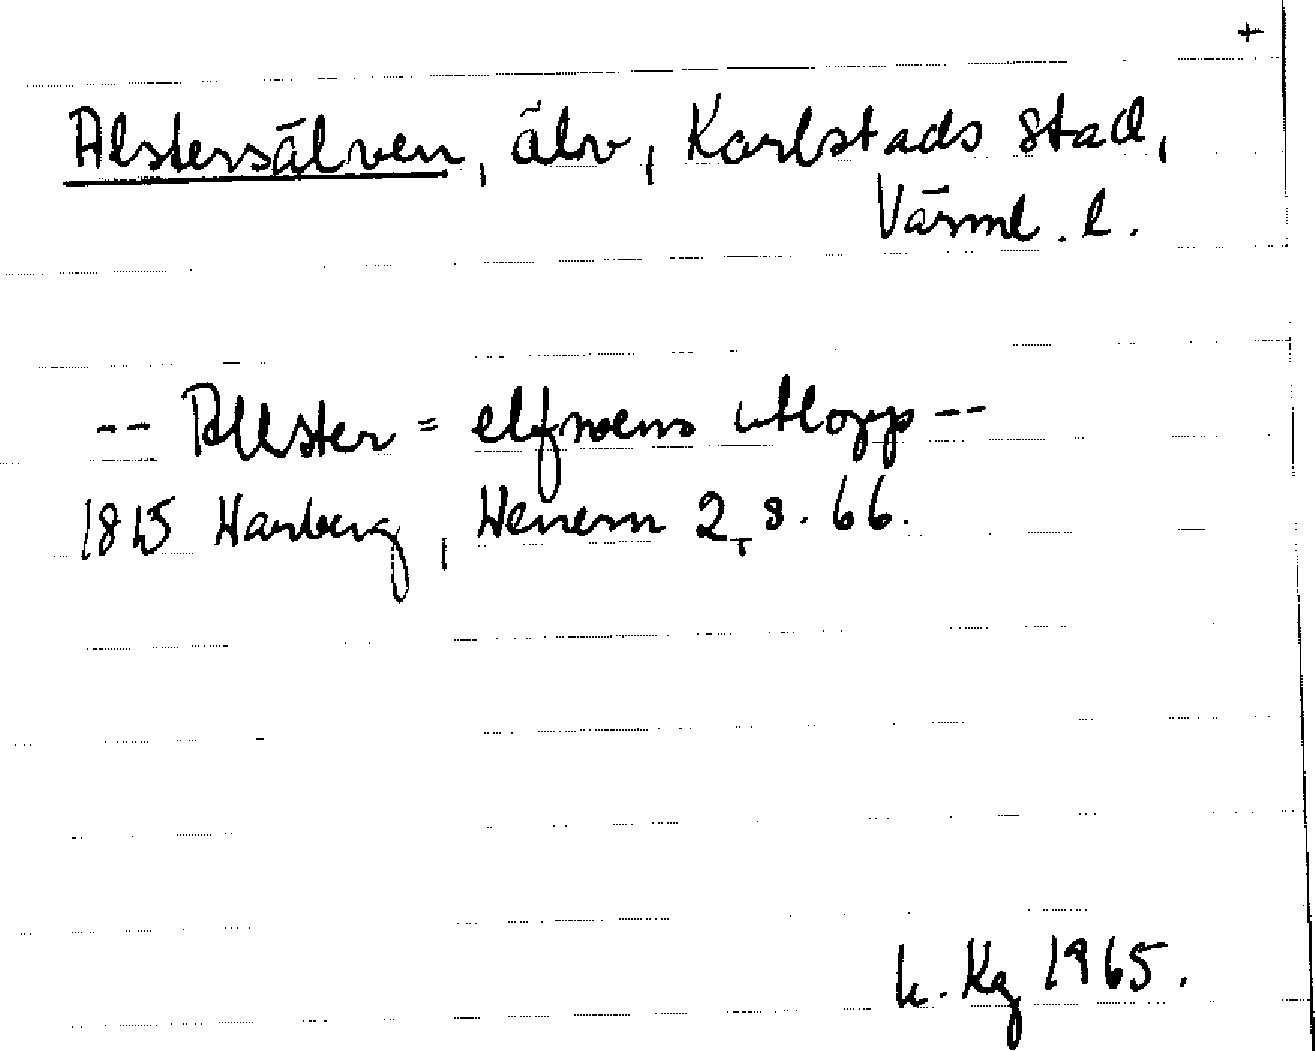 +
Alstersälven, älv, Karlstads stad,
Värml. l.
-- Allster = elfvens utlopp --
1815 Warberg, Wenern 2, s. 66.
k. Kg 1965.